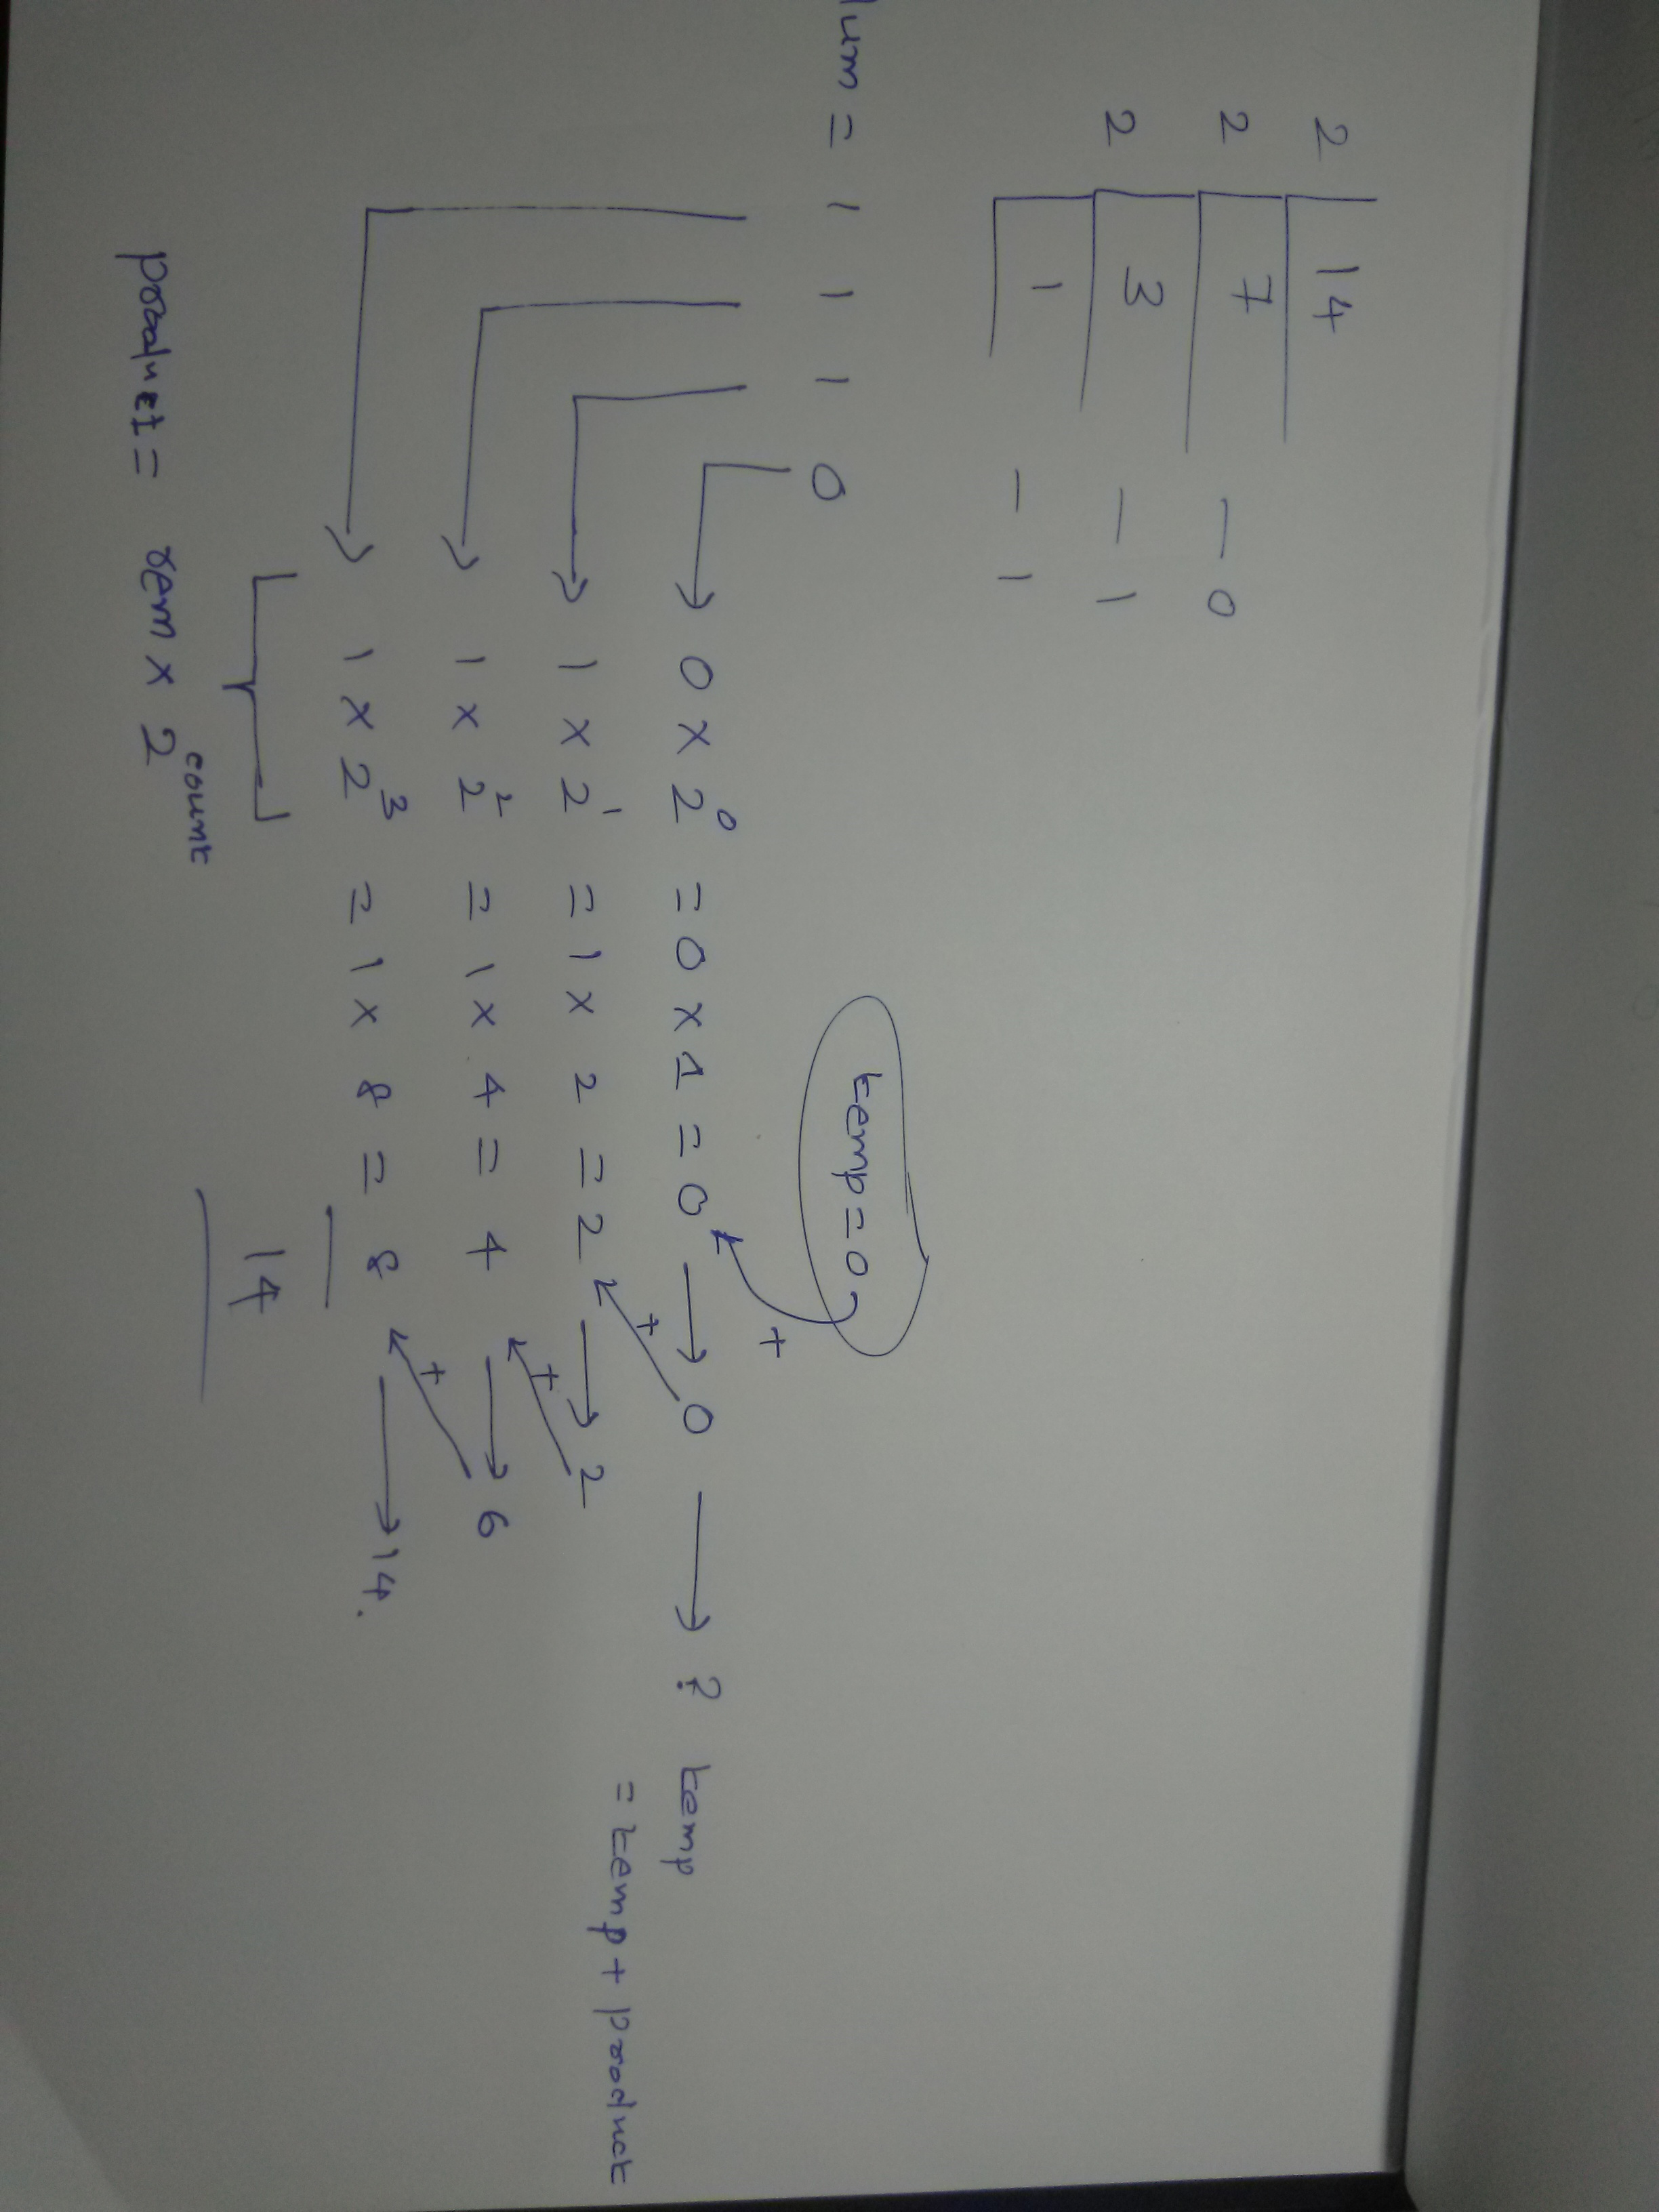 2 14
2 7 — 0
2 3 — 1
1 — 1
temp = 0
lum = 1 1 1 0
+
0 × 2⁰ = 0 × 1 = 0 → 0 → ? temp
+
= temp + product
1 × 2¹ = 1 × 2 = 2 → 2
+
1 × 2² = 1 × 4 = 4 → 6
+
1 × 2³ = 1 × 8 = 8 → 14.
14
product = rem × 2^count